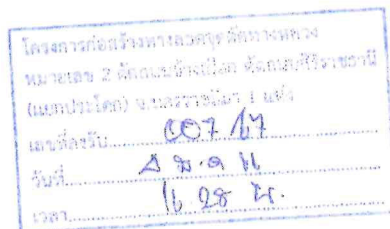 โครงการก่อสร้างทางลอดจุดตัดทางหลวง
หมายเลข 2 กับถนนช้างเผือก กับถนนสิริราชธานี
(แยกประโดก) จ.นครราชสีมา 1 แห่ง
เลขที่ลงรับ 007/67
วันที่
เวลา 11 28 น.